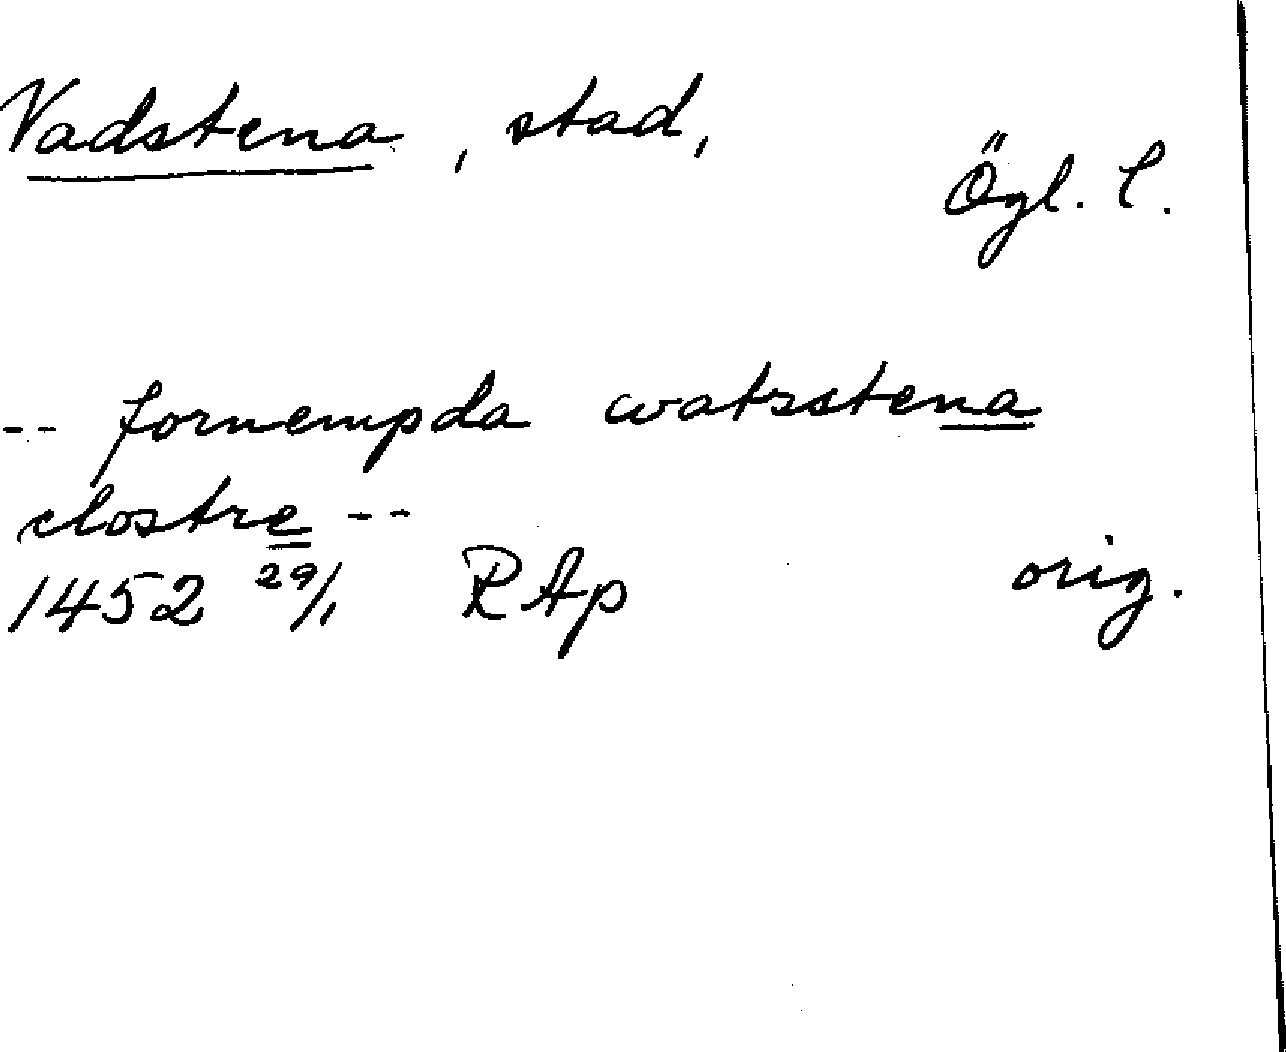 Vadstena, stad,
Ögl. l.
-- fornempda watzstena
clostre --
1452 29/1 RAp orig.